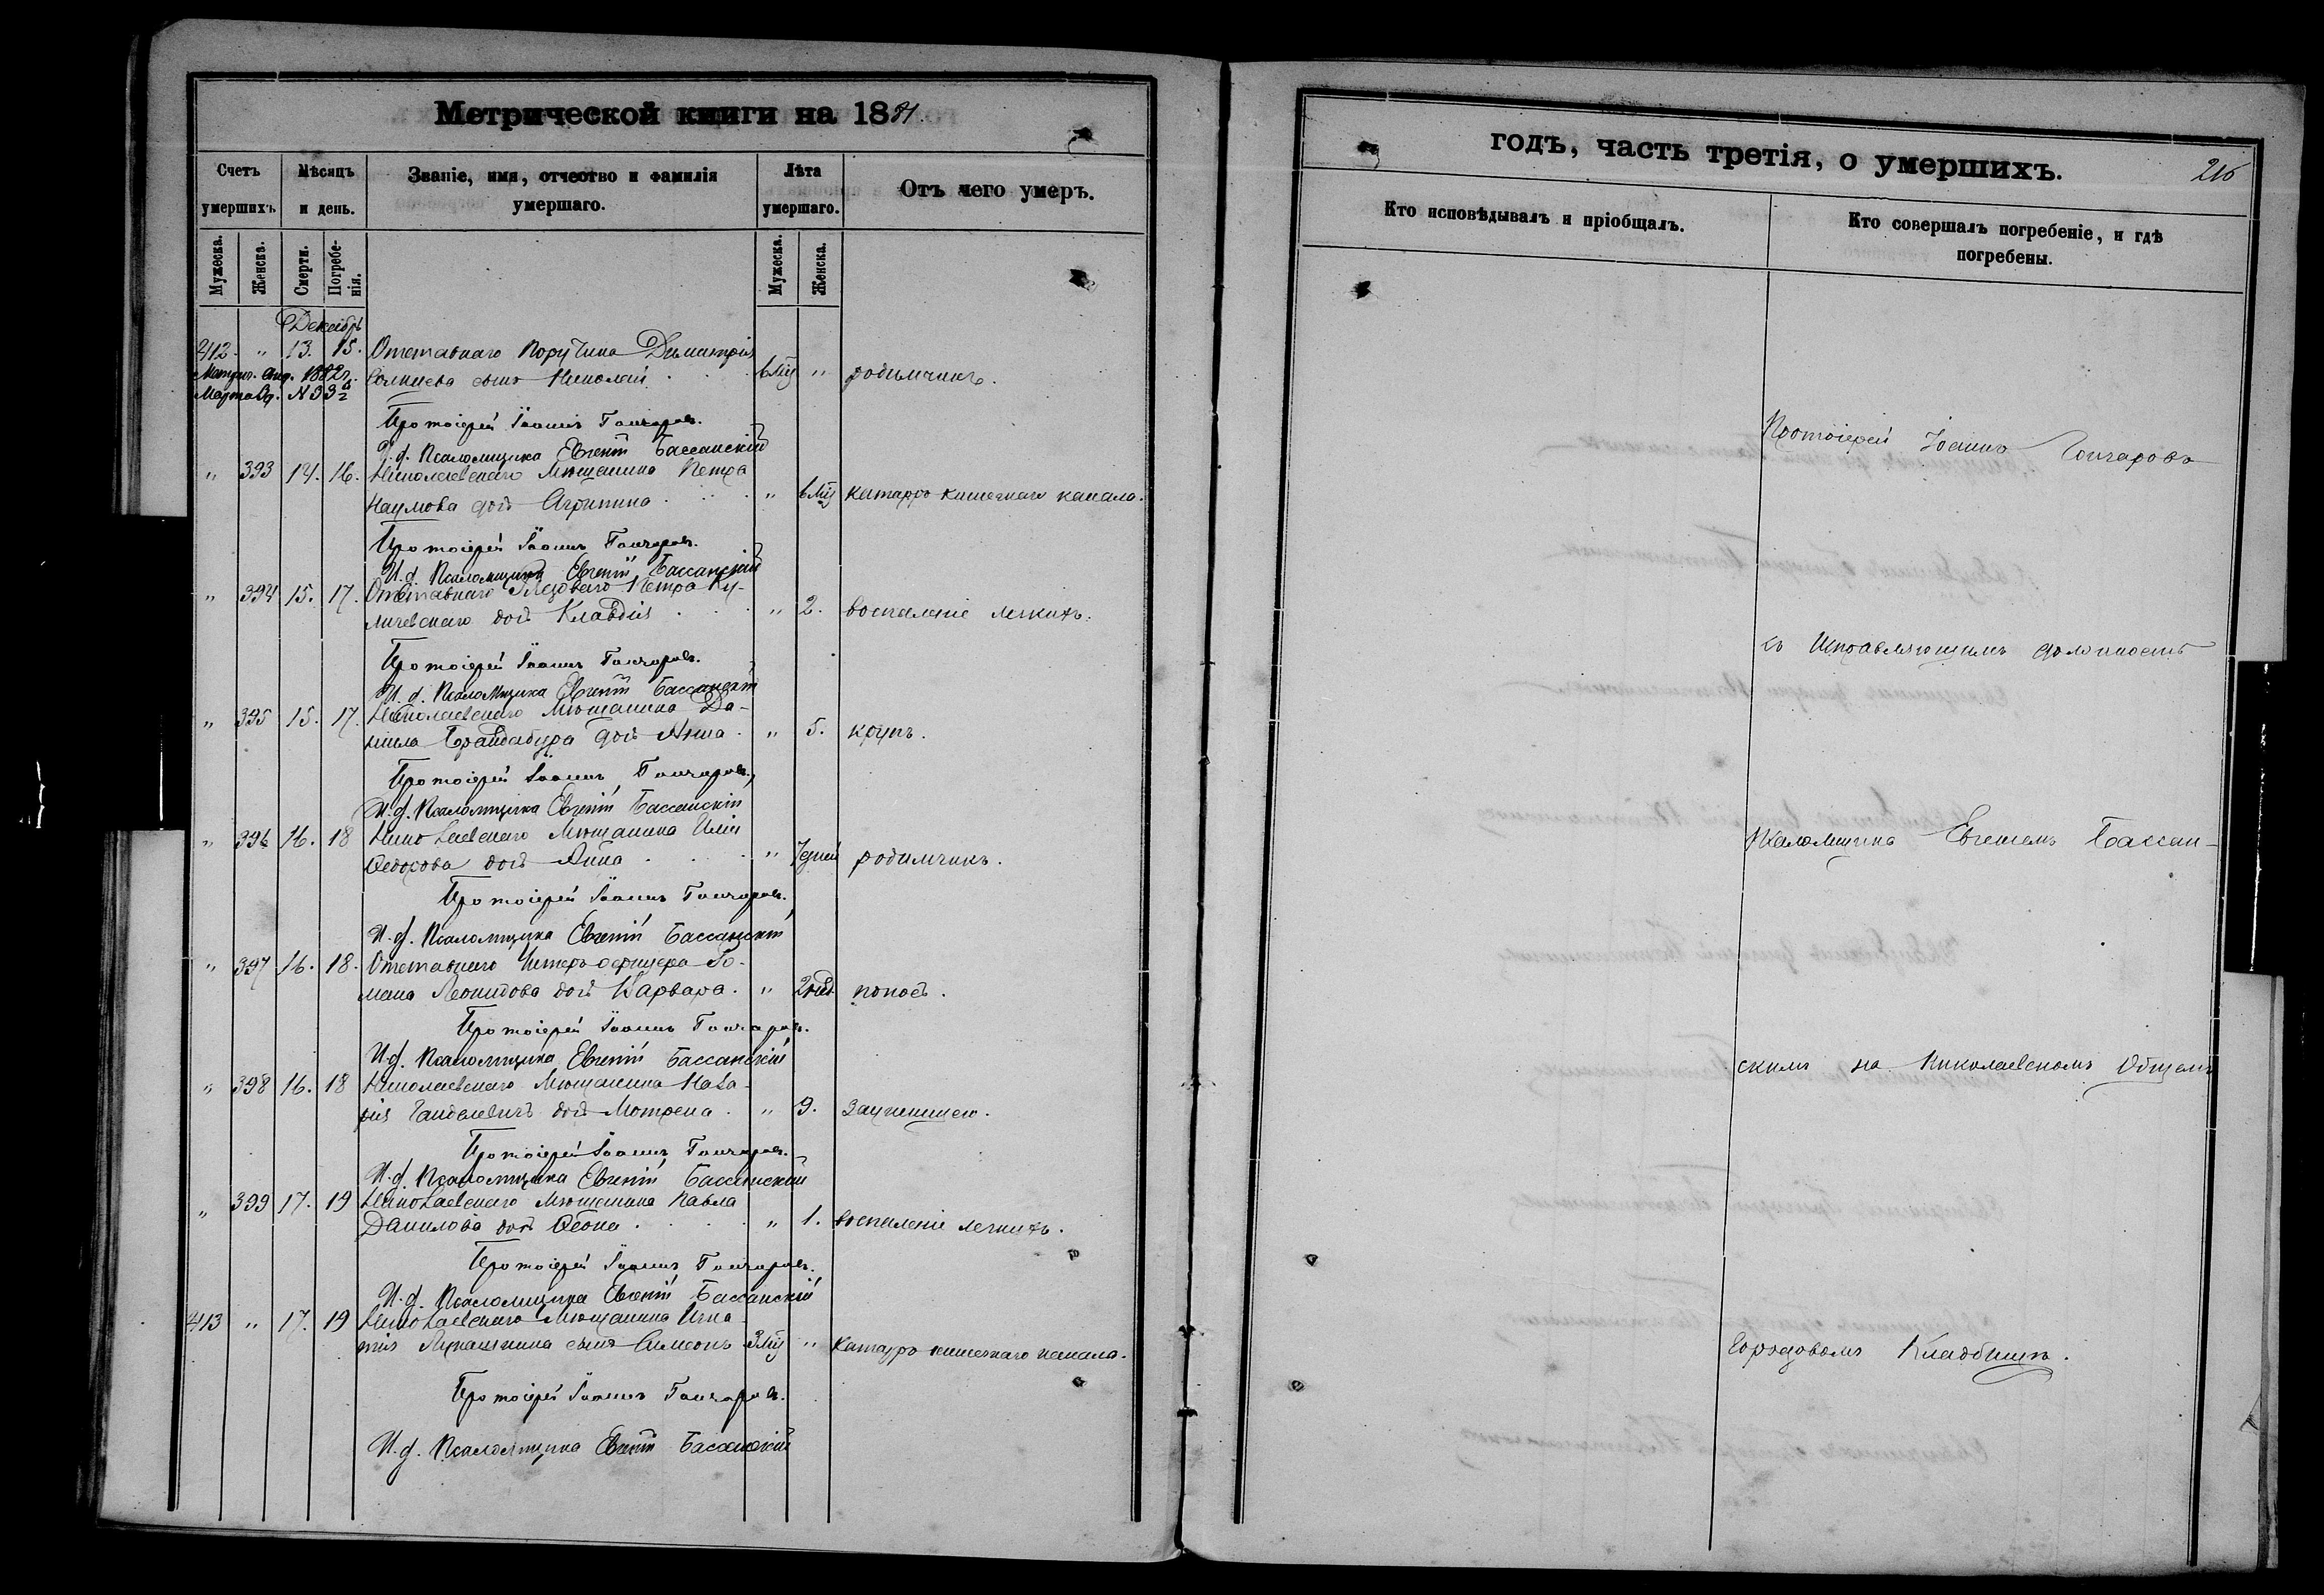 Метрической книги на 1881.
Счетъ умершихъ.
Мѣсяцъ и день.
Званіе, имя, отчество и фамилія умершаго.
Лѣта умершаго.
Отъ чего умеръ.
Мужеска.
Женска.
Смерти.
Погребе-
нія.
Мужеска.
Женска.
Декабрь
412. " 13. 15. Отставнаго Поручика Димитрія
1882г.
сынъ Николай 6 мц " родимчикъ.
Марта № 33
Протоіерей Іоаннъ Гончаровъ.
И. д. Псаломщика Евгеній Бассанскій
" 393 14. 16. Николаевскаго Мѣщанина Петра
Наумова дочь Агрипина " 6 мц катарръ кишечнаго канала.
Протоіерей Іоаннъ Гончаровъ.
И. д. Псаломщика Евгеній Бассанскій
" 394 15. 17. Отставнаго Петра Ку-
личевскаго дочь Клавдія " 2. воспаленіе легкихъ.
Протоіерей Іоаннъ Гончаровъ.
И. д. Псаломщика Евгеній Бассанскій
" 395 15. 17. Николаевскаго Мѣщанина Да-
ніила дочь Анна " 5. крупъ.
Протоіерей Іоаннъ Гончаровъ.
И. д. Псаломщика Евгеній Бассанскій
" 396 16. 18 Николаевскаго Мѣщанина Иліи
Ѳедорова дочь Анна " 7 дней родимчикъ.
Протоіерей Іоаннъ Гончаровъ.
И. д. Псаломщика Евгеній Бассанскій
" 397 16. 18. Отставнаго Унтеръ-офицера Ро-
мана Леонидова дочь Варвара. " 2 нед. поносъ.
Протоіерей Іоаннъ Гончаровъ.
И. д. Псаломщика Евгеній Бассанскій
" 398 16. 18 Николаевскаго Мѣщанина Наза-
рія дочь Мотрона. " 9.
Протоіерей Іоаннъ Гончаровъ.
И. д. Псаломщика Евгеній Бассанскій
" 399 17. 19 Николаевскаго Мѣщанина Павла
Данилова дочь " 1. воспаленіе легкихъ.
Протоіерей Іоаннъ Гончаровъ.
И. д. Псаломщика Евгеній Бассанскій
413 " 17. 19 Николаевскаго Мѣщанина Игна-
тія Лукашкина сынъ Симеонъ 3 мц " катарръ кишечнаго канала.
Протоіерей Іоаннъ Гончаровъ.
И. д. Псаломщика Евгеній Бассанскій
годъ, часть третія, о умершихъ.
216
Кто исповѣдывалъ и пріобщалъ.
Кто совершалъ погребеніе, и гдѣ
погребены.
Протоіерей Іоаннъ Гончаровъ
съ Исправляющимъ должность
Псаломщика Евгеніемъ Бассан-
скимъ на Николаевскомъ Общемъ
Городовомъ Кладбищѣ.